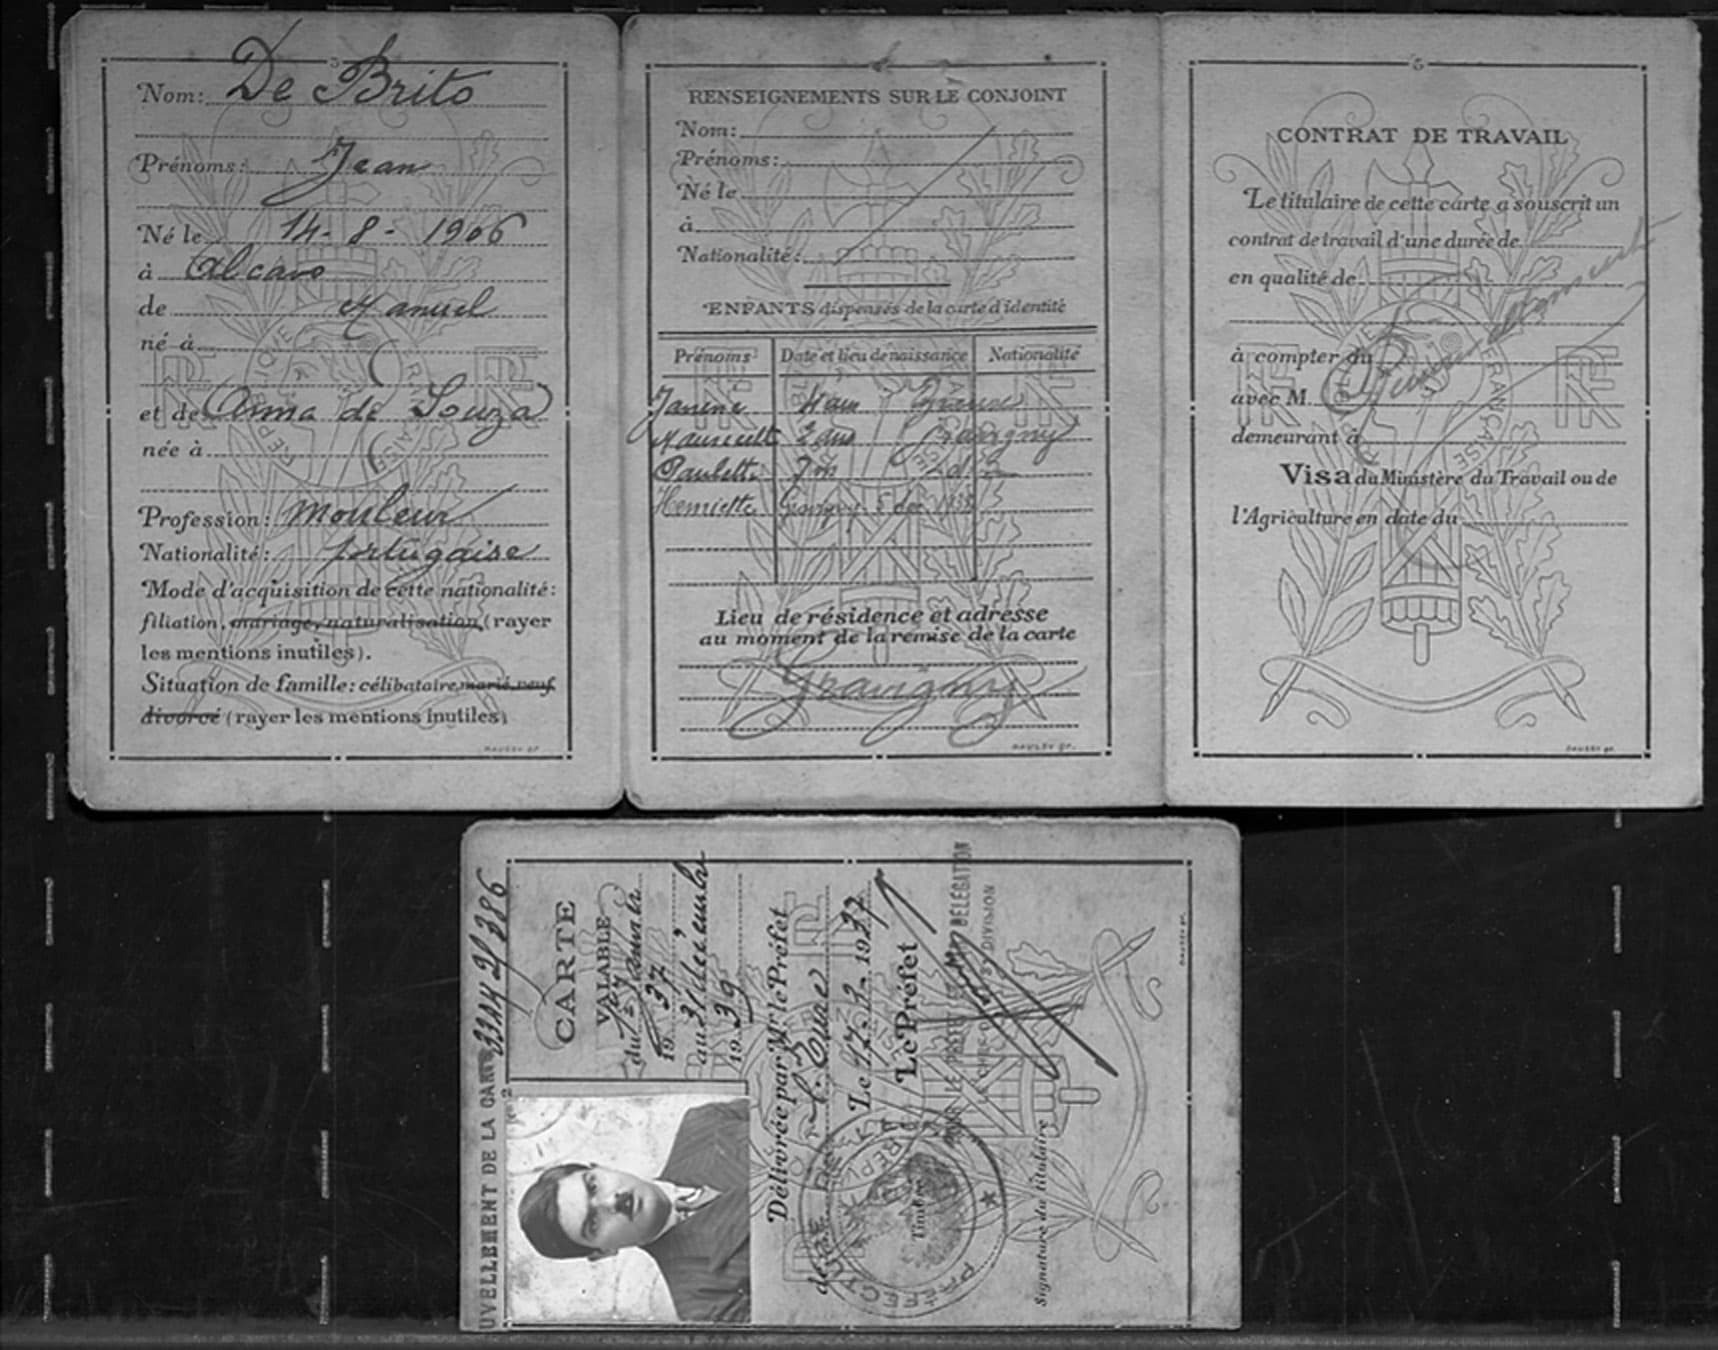 3
Nom: De Brito
Prénoms: Jean
Né le 14-8-1906
à Alcaro
de Manuel
né à
et de Anna de Souza
née à
Profession: mouleur
Nationalité: portugaise
Mode d'acquisition de cette nationalité:
filiation, mariage, naturalisation (rayer
les mentions inutiles).
Situation de famille: célibataire, marié, veuf
divorcé (rayer les mentions inutiles)
RENSEIGNEMENTS SUR LE CONJOINT
Nom:
Prénoms:
Né le
à
Nationalité:
ENFANTS dispensés de la carte d'identité
Prénoms: Date et lieu de naissance Nationalité
Janine 4 ans
2 ans Gravigny
Paulette 7 m
Henriette Gravigny 5 dec 1938
Lieu de résidence et adresse
au moment de la remise de la carte
Gravigny
5
CONTRAT DE TRAVAIL
Le titulaire de cette carte a souscrit un
contrat de travail d'une durée de
en qualité de
à compter du
avec M.
demeurant à
Visa du Ministère du Travail ou de
l'Agriculture en date du
UVELLEMENT DE LA CAR
2
CARTE
VALABLE
du 1er Janvier
1937
au 31 décembre
1939
Délivrée par Mr le Préfet
de l'Eure
Le 1937
Le Préfet
POUR LE PRÉFET ET PAR DÉLÉGATION
LE CHEF DE DIVISION
Timbre
Signature du titulaire